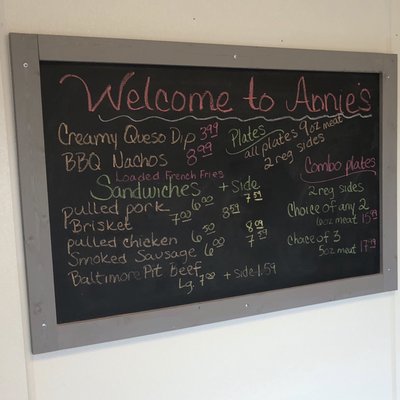 Welcome to Annie's
Creamy Queso Dip 3.99
BBQ Nachos 8.99
Loaded French Fries
Sandwiches + Side
pulled pork 6.00 7.59
Brisket 7.00 8.59
pulled chicken 6.50 8.09
Smoked Sausage 6.00 7.59
Baltimore Pit beef
Lg. 7.00 + side 1.59
Plates
all plates 9oz meat
2 reg sides
Combo plates
2 reg sides
Choice of any 2
6oz meat 15.99
Choice of 3
5oz meat 17.99